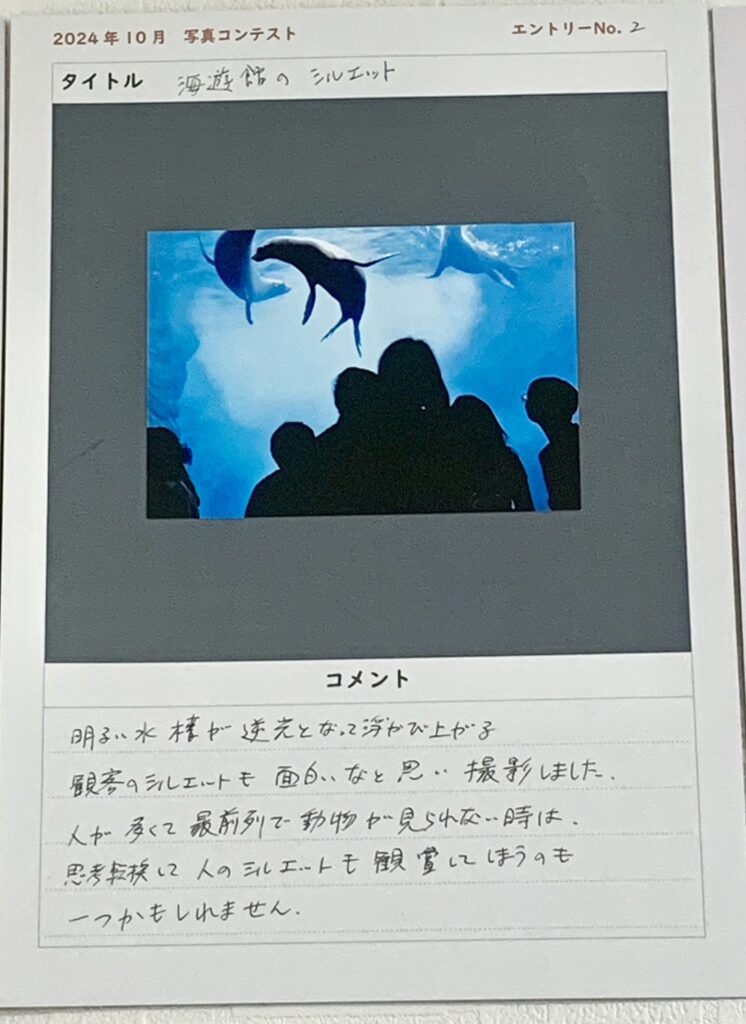 2024年10月 写真コンテスト エントリーNo. 2
タイトル 海遊館の シルエット
コメント
明るい水槽が逆光となって浮かび上がる
観客のシルエットも面白いなと思い撮影しました.
人が多くて最前列で動物が見られない時は、
思考転換して人のシルエットも観賞してしまうのも
一つかもしれません.